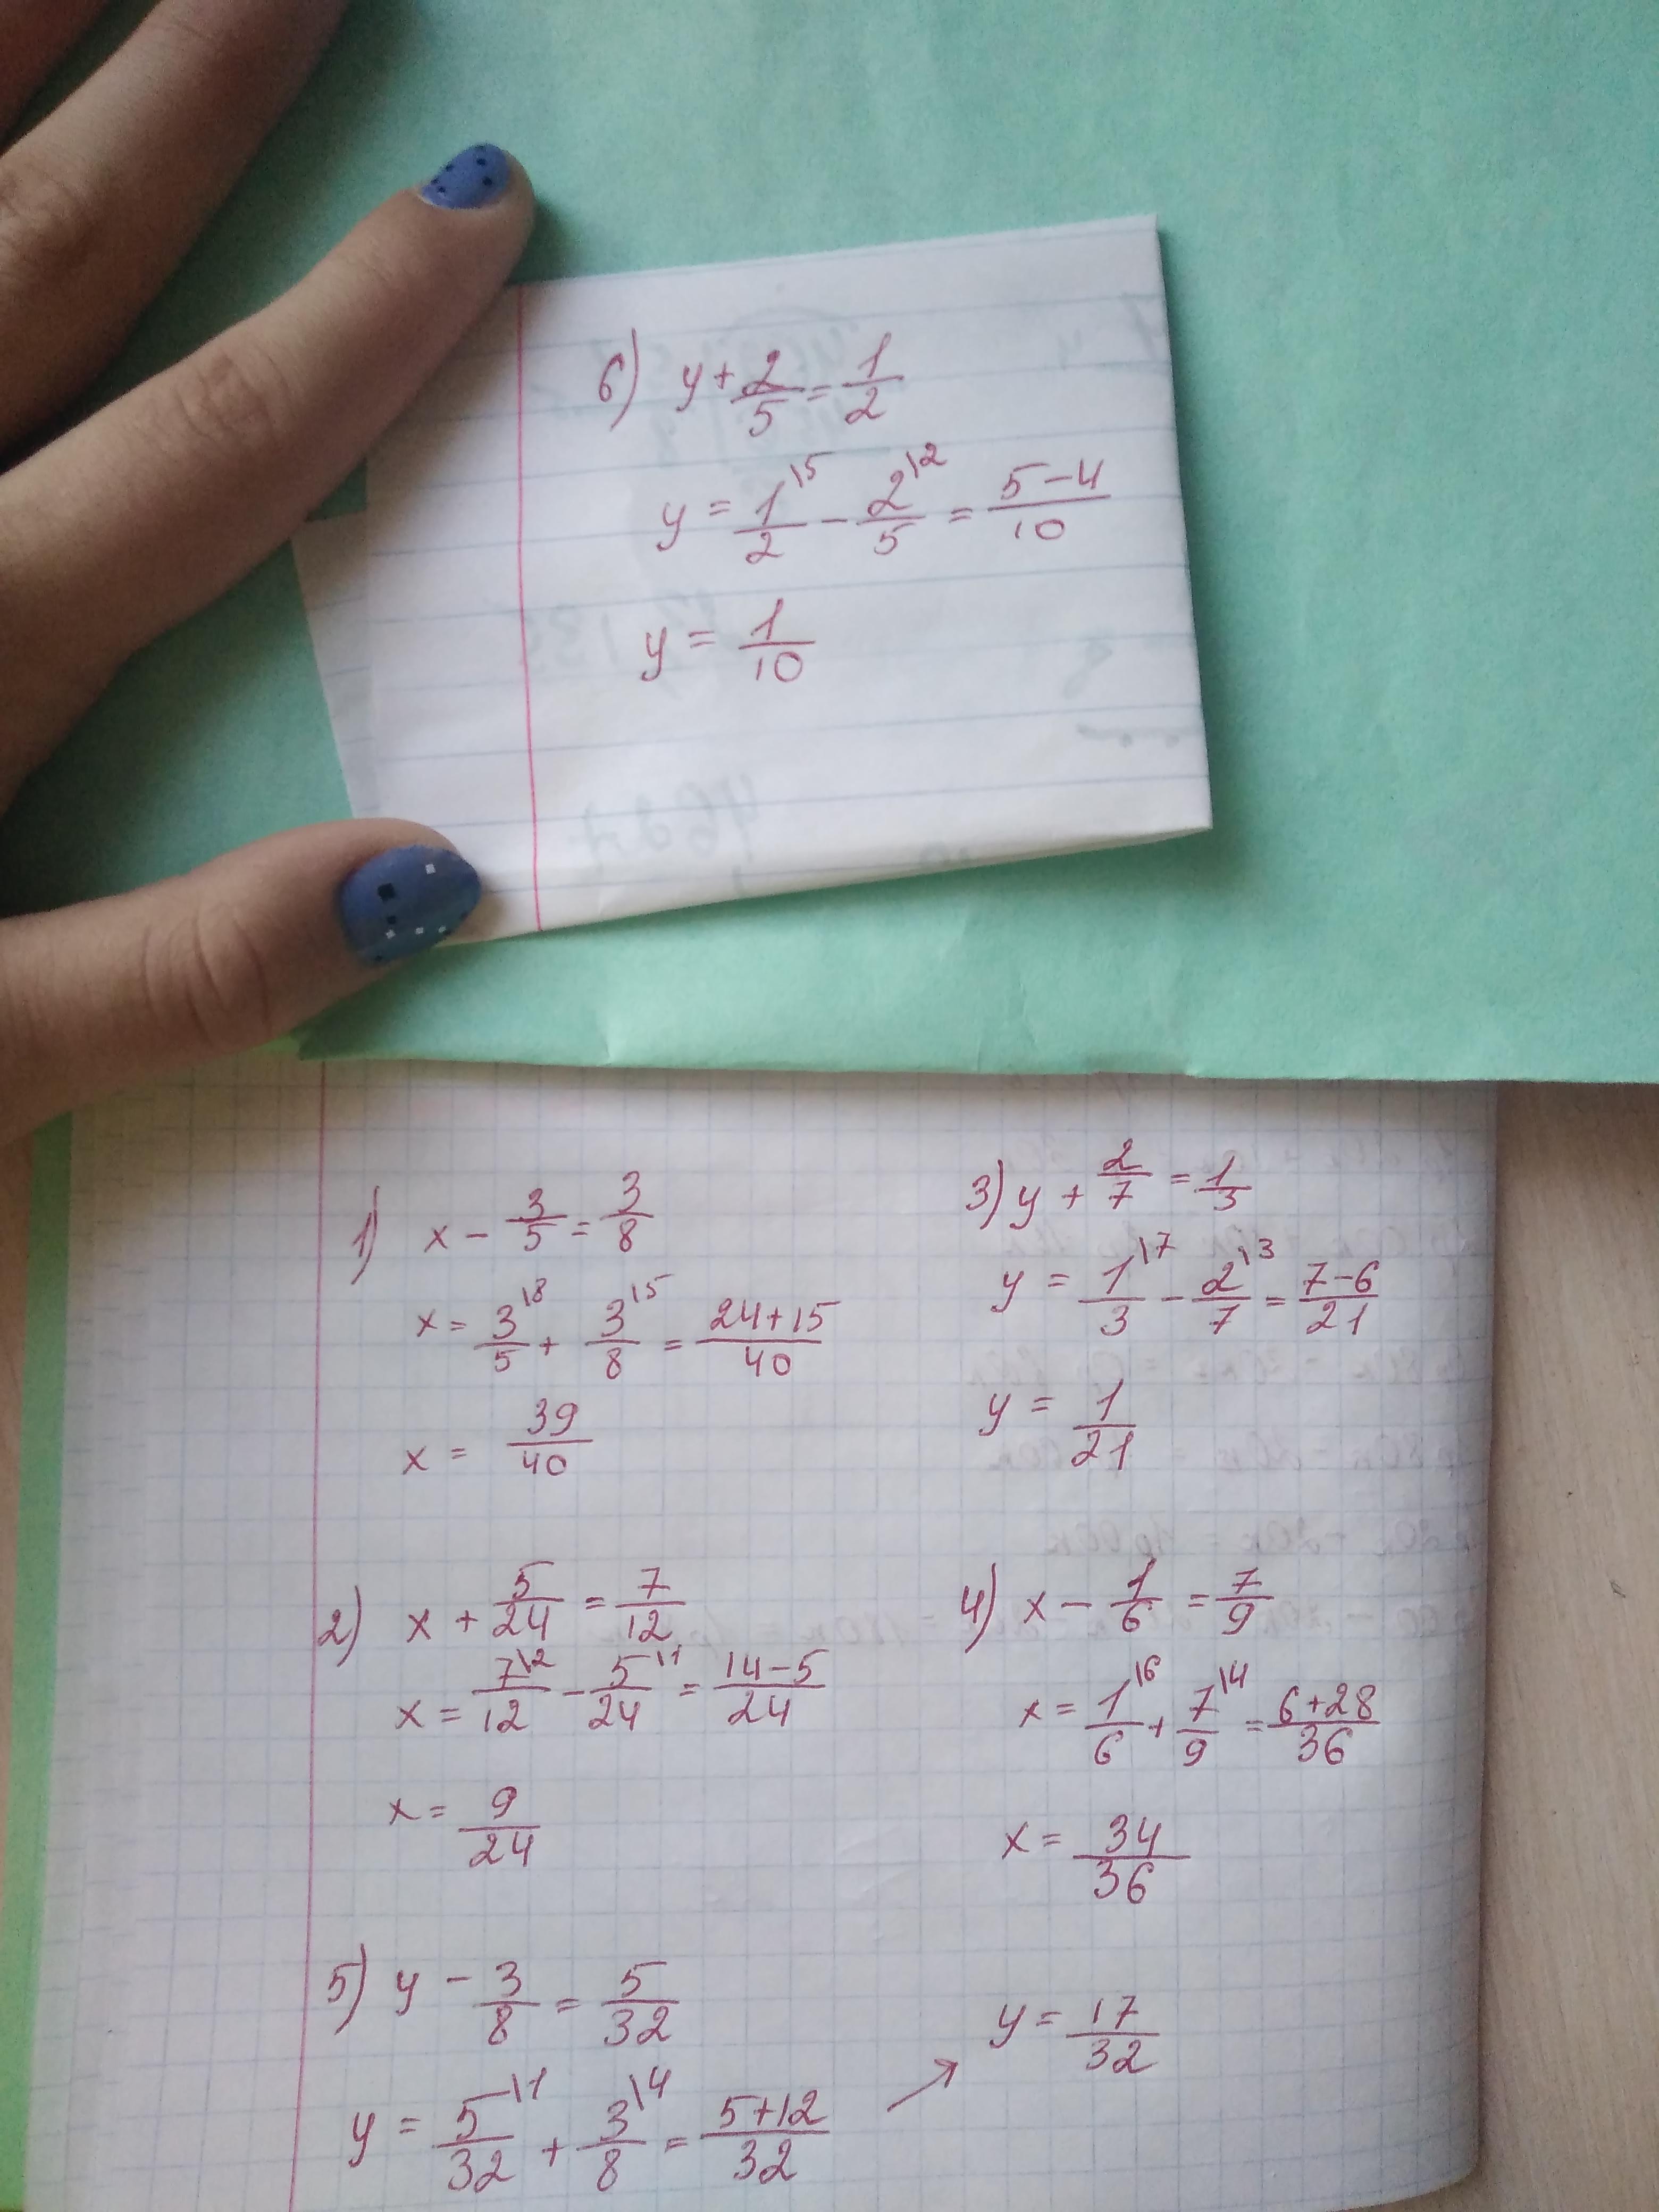 6) y + 2/5 = 1/2
y = 1\5/2 - 2\2/5 = 5-4/10
y = 1/10
1) x - 3/5 = 3/8
x = 3\8/5 + 3\5/8 = 24+15/40
x = 39/40
3) y + 2/7 = 1/3
y = 1\7/3 - 2\3/7 = 7-6/21
y = 1/21
2) x + 5/24 = 7/12
x = 7\2/12 - 5\1/24 = 14-5/24
x = 9/24
4) x - 1/6 = 7/9
x = 1\6/6 + 7\4/9 = 6+28/36
x = 34/36
5) y - 3/8 = 5/32
y = 5\1/32 + 3\4/8 = 5+12/32
y = 17/32